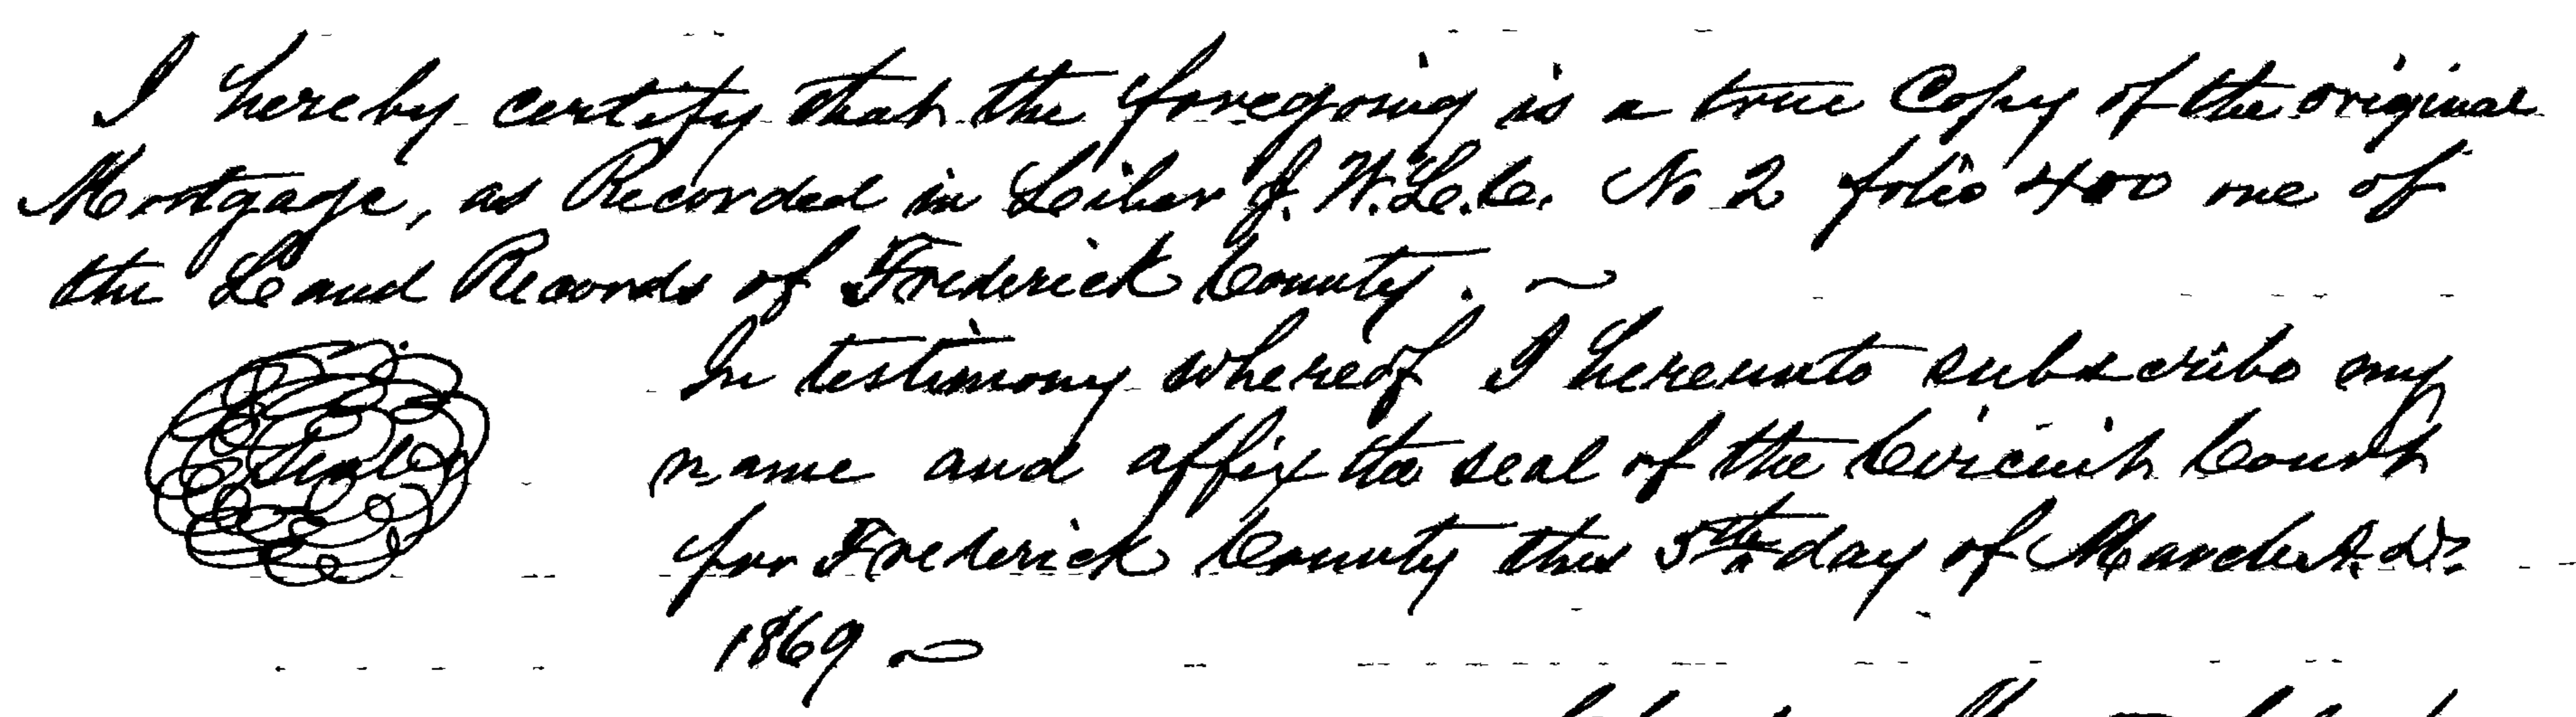 I hereby certify that the foregoing is a true Copy of the original
Mortgage, as Recorded in Leiber J. W. L. C. No 2 folio 400 one of
the Land Records of Frederick County. ~
In testimony whereof I hereunto subscribe my
Seal name and affix the seal of the Circuit Court
for Frederick County this 5th day of March A. D.
1869 ~